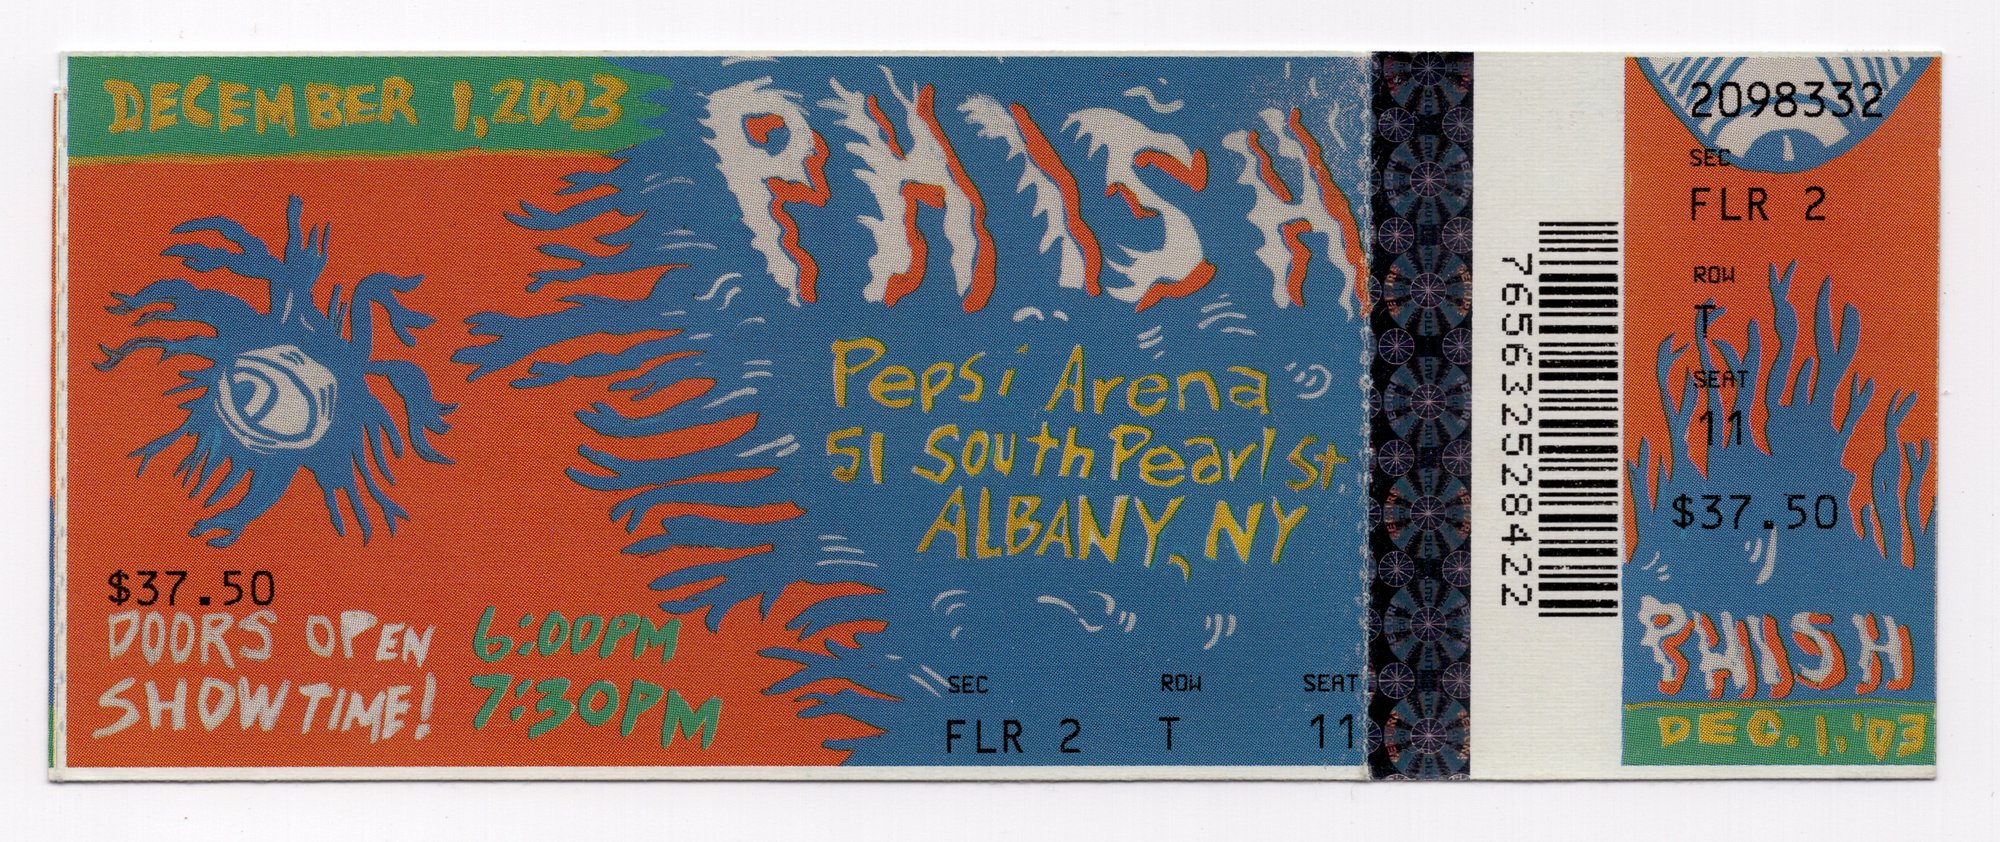 DECEMBER 1, 2003
PHISH
Pepsi Arena
51 South Pearl St.
ALBANY, NY
$37.50
DOORS OPEN 6:00PM
SHOWTIME! 7:30PM
SEC ROW SEAT
FLR 2 T 11
765632528422
2098332
SEC
FLR 2
ROW
T
SEAT
11
$37.50
PHISH
DEC. 1. '03